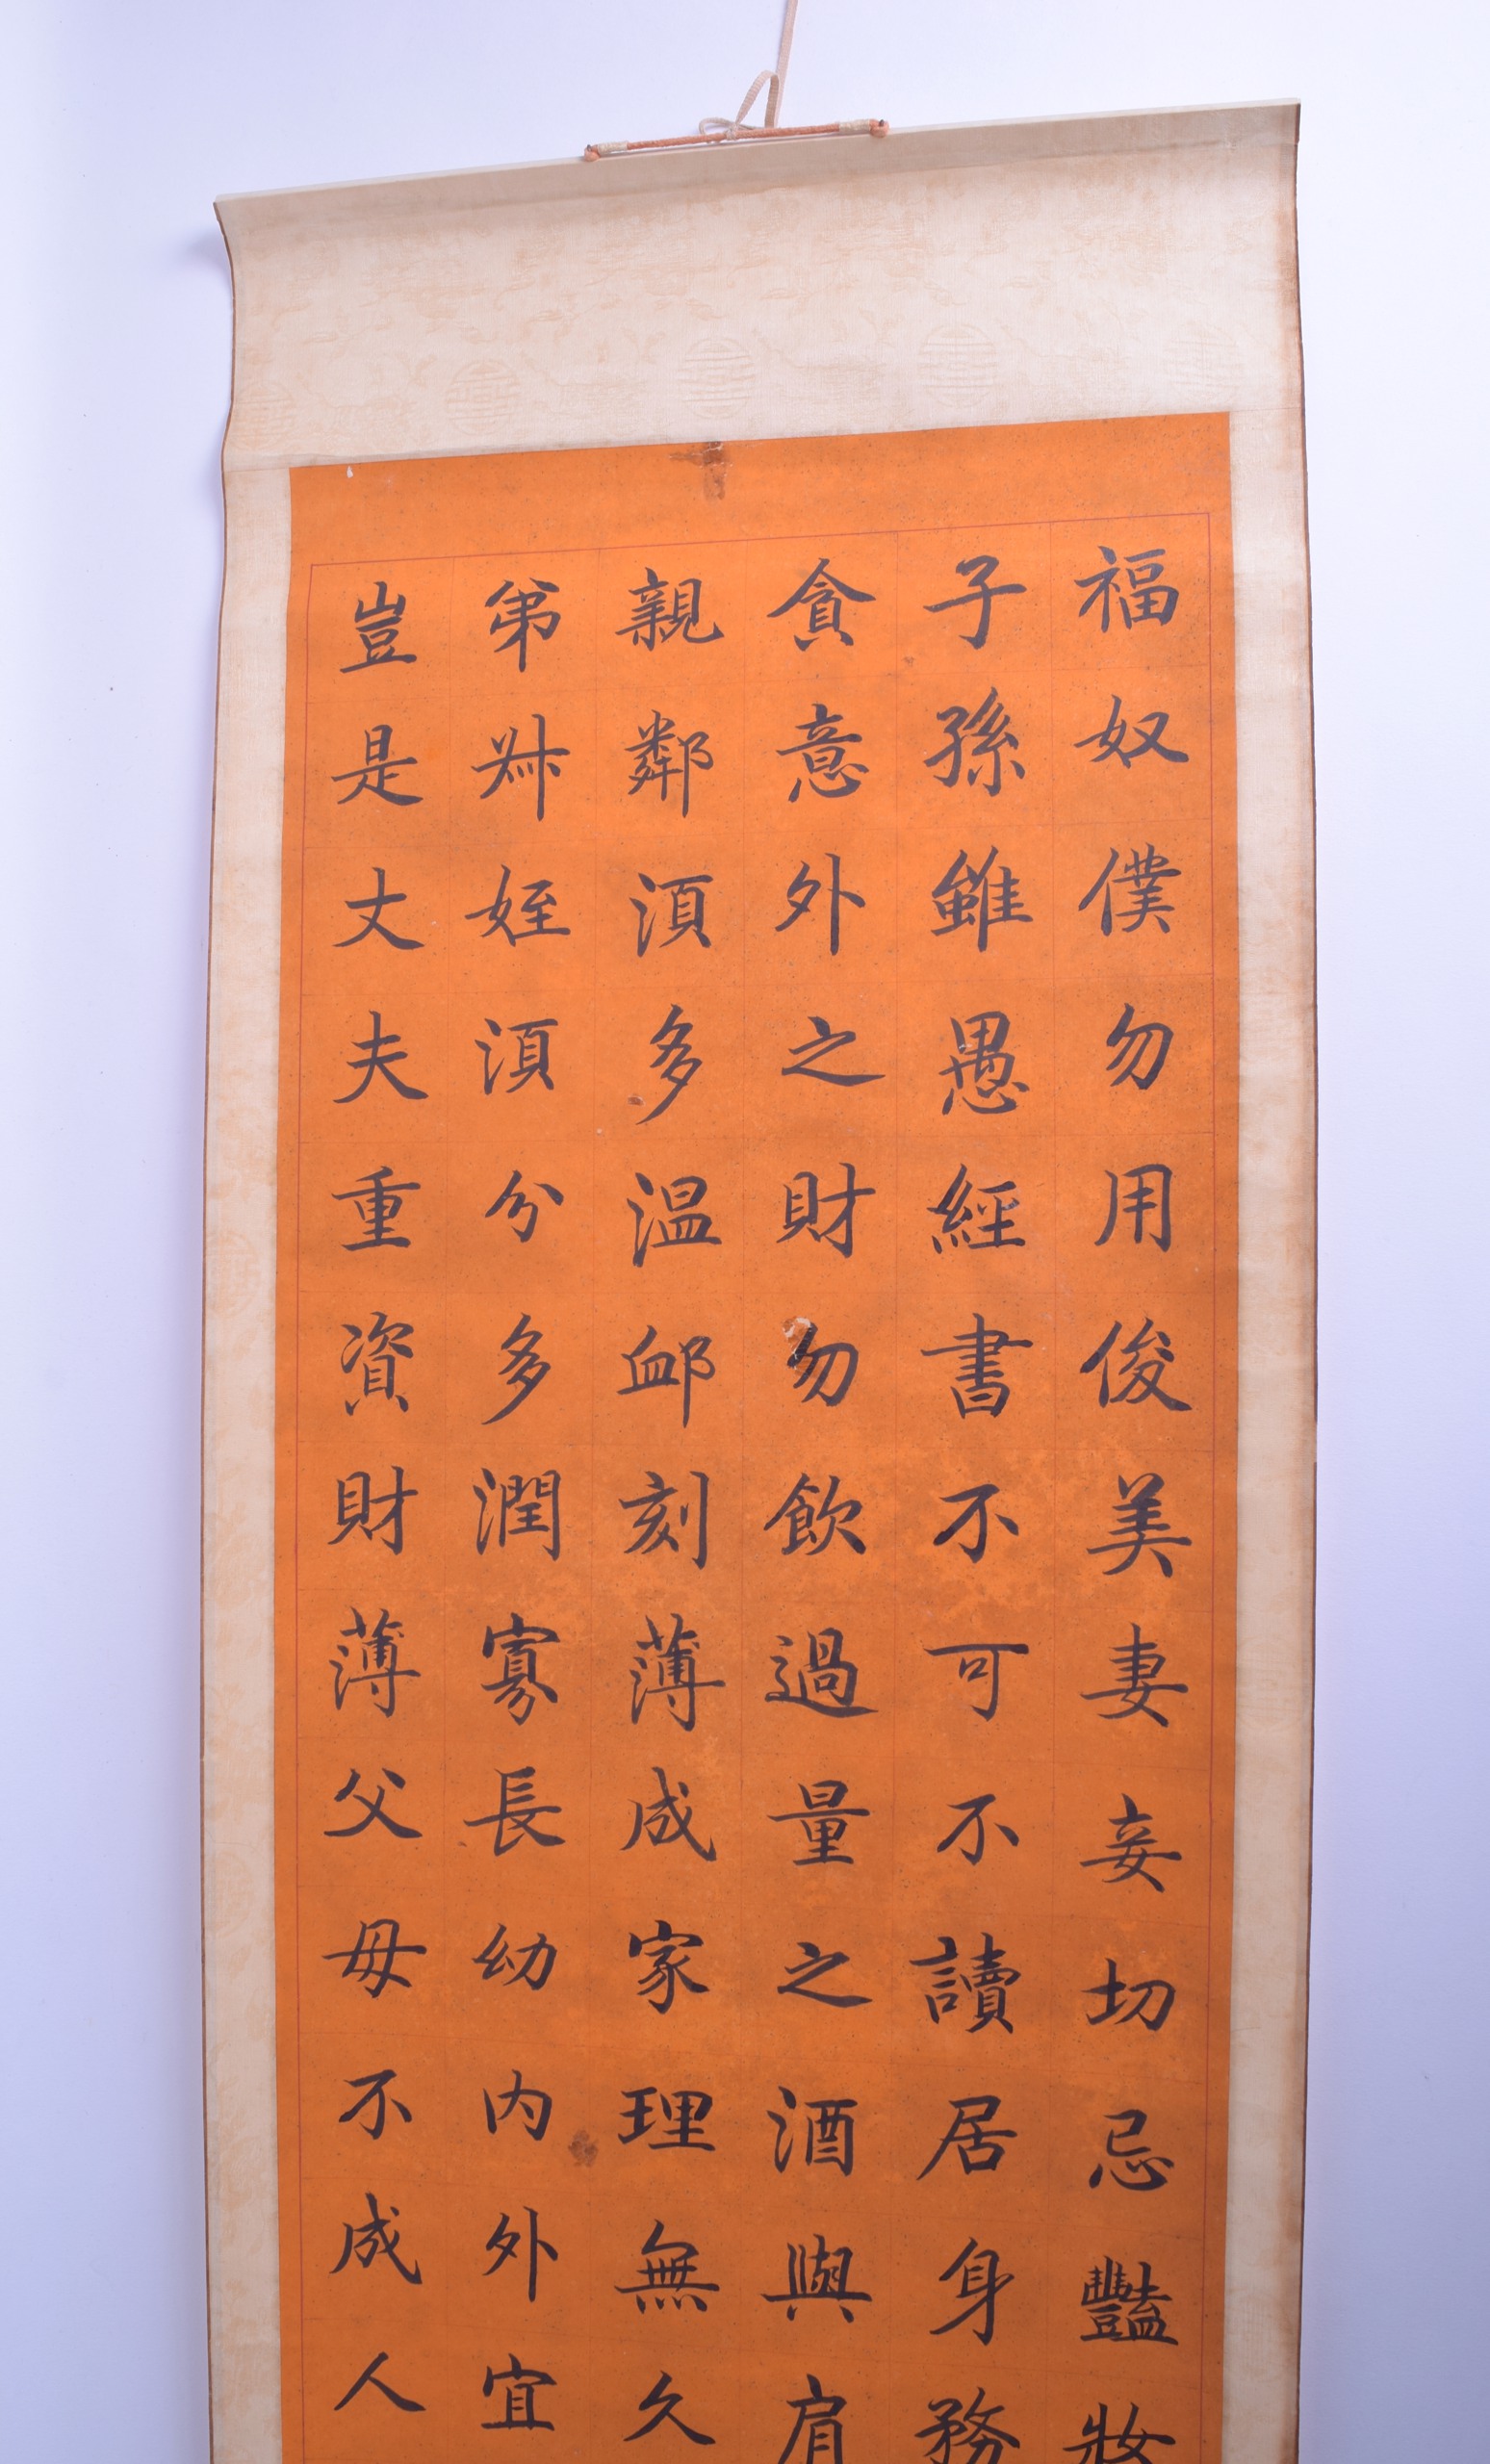 福奴僕勿用俊美妻妾切忌豔妝
子孫雖愚經書不可不讀居身務
貪意外之財勿飲過量之酒與肩
親鄰湏多温卹刻薄成家理無久
弟叔姪湏分多潤寡長幼內外宜
豈是丈夫重資財薄父母不成人